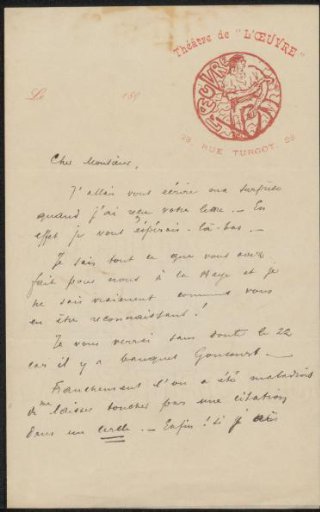 Théâtre de "L'ŒUVRE"
L'ŒUVRE
Le 189
23, RUE TURGOT, 23
Cher Monsieur,
J'allais vous écrire ma surprise
quand j'ai reçu votre lettre. — En
effet je vous espérais là-bas —
Je sais tout ce que vous avez
fait pour nous à la Haye et je
ne sais vraiment comment vous
en être reconnaissant.
Je vous verrai sans doute le 22
car il y a banquet Goncourt —
Franchement l'on a été maladroit
de me laisser toucher par une citation
dans un cercle. — Enfin ! si j'